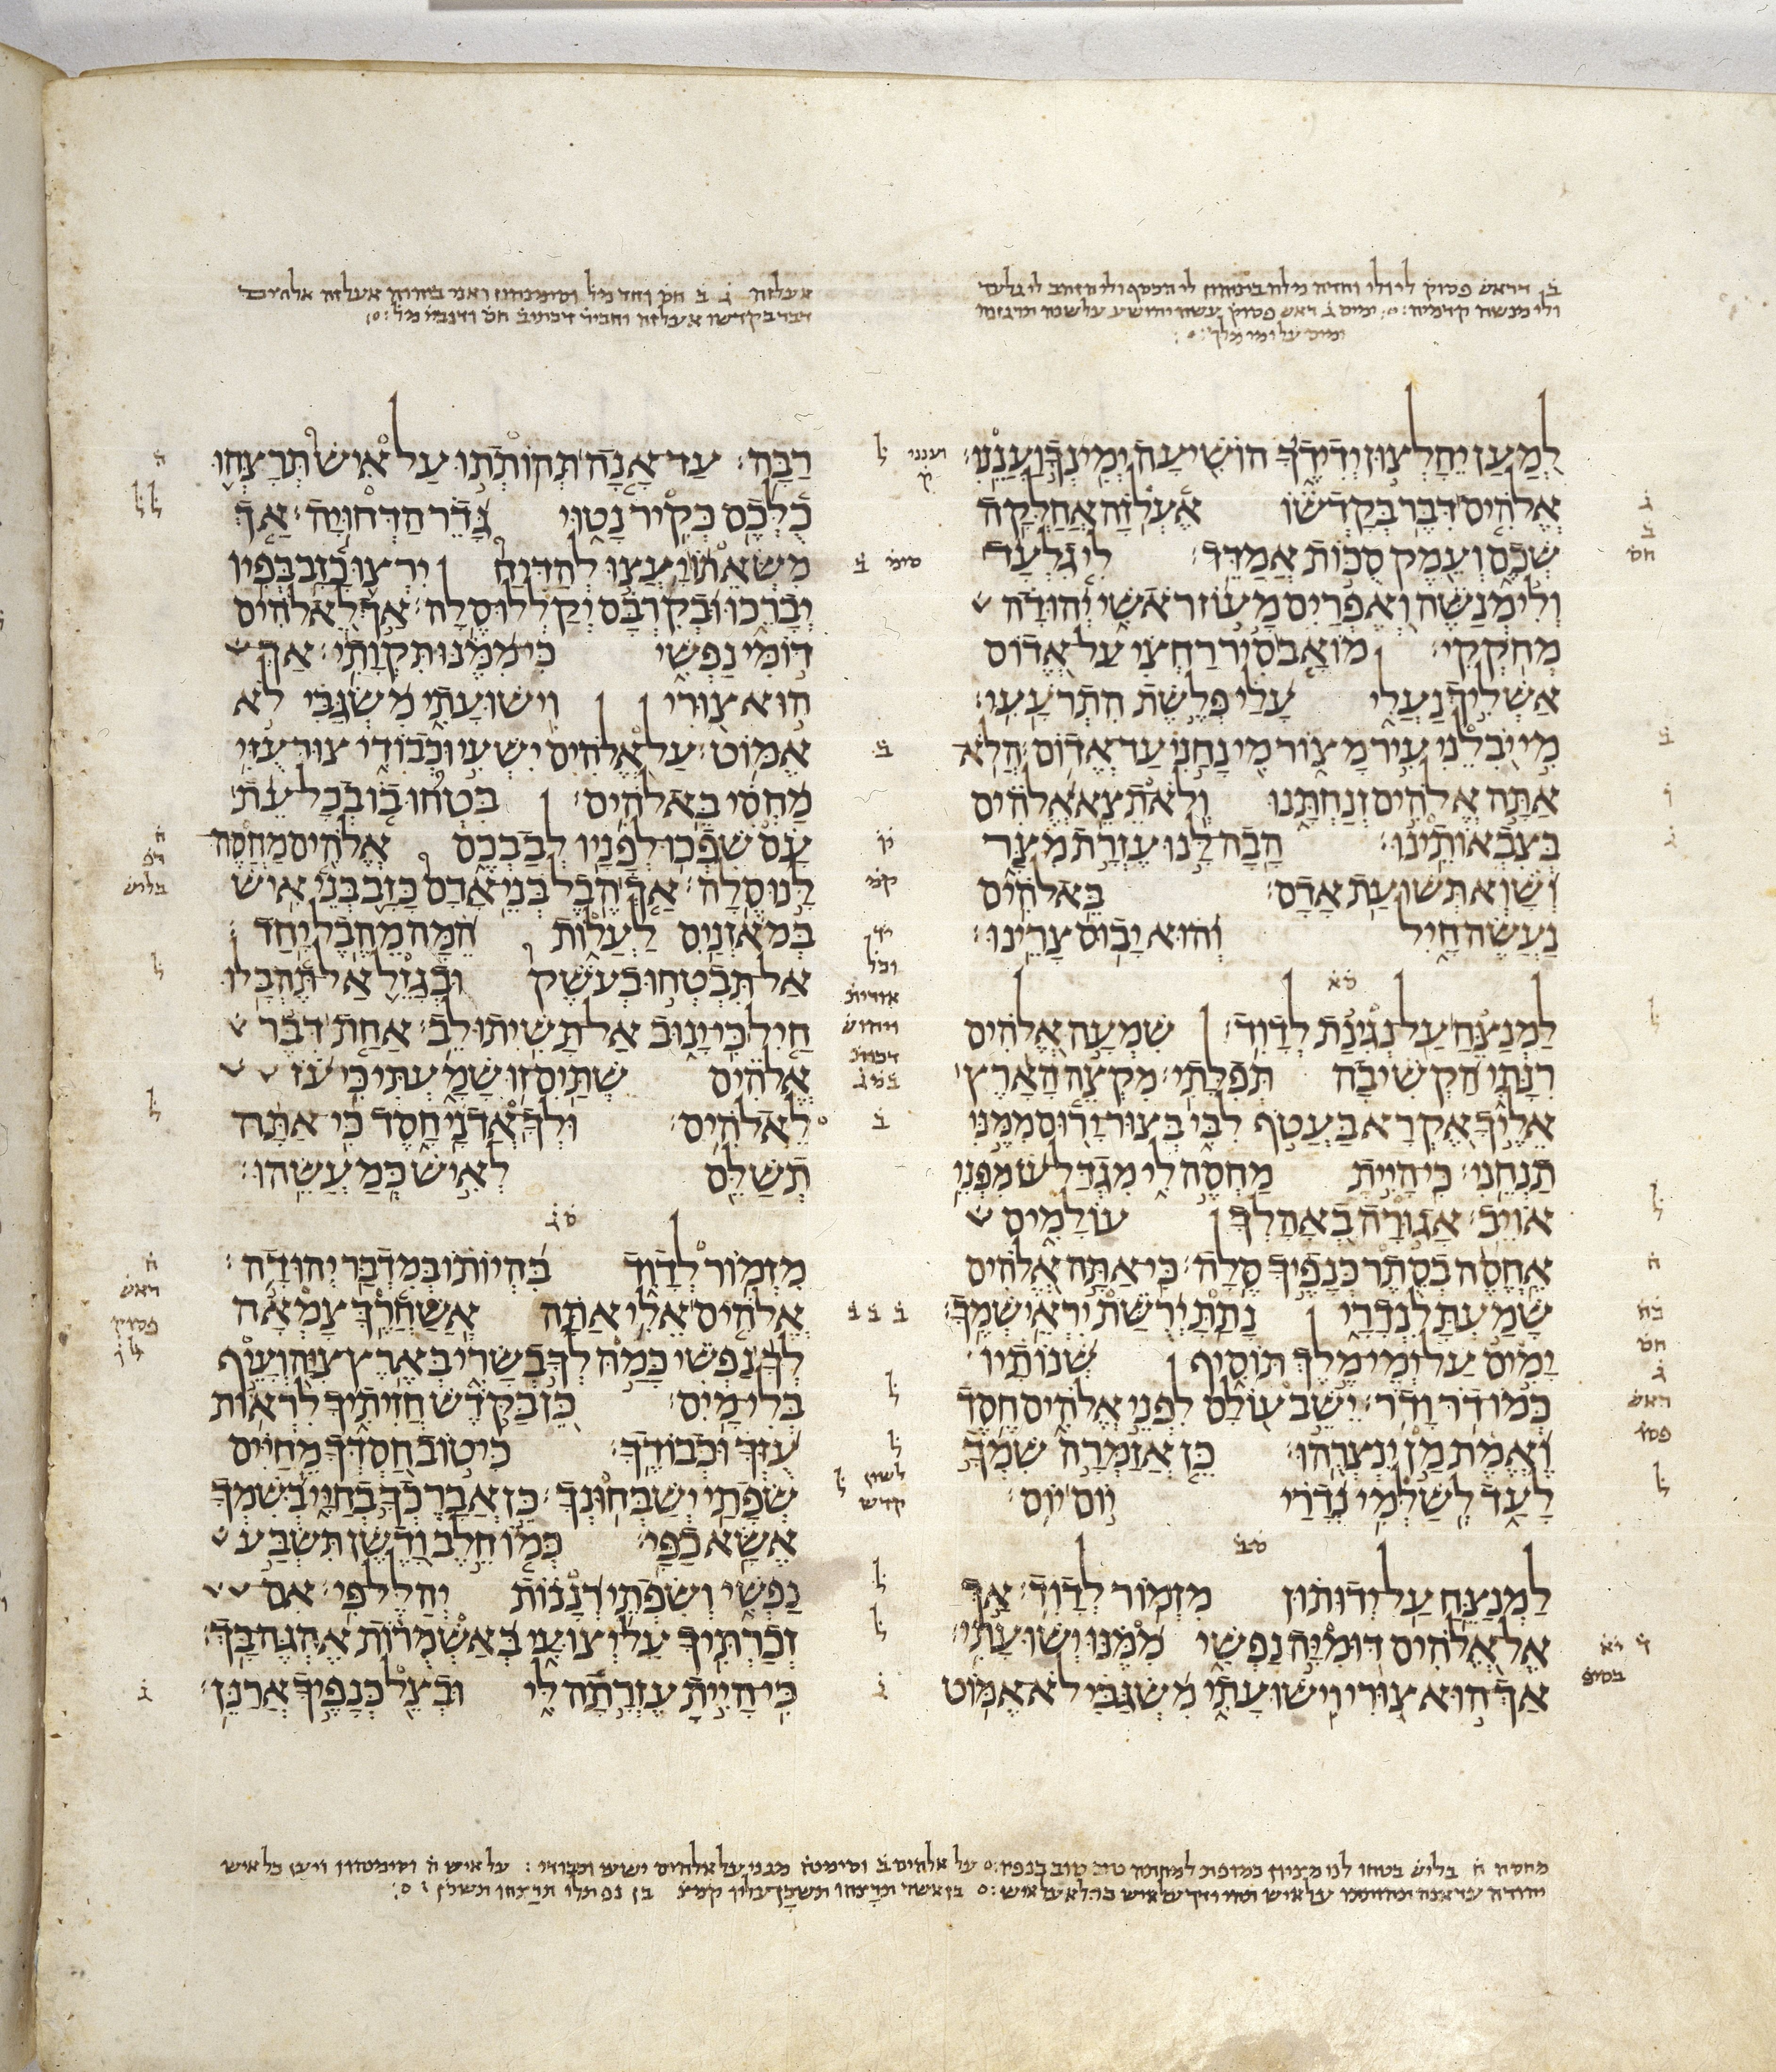 ב֗ דראש פסוק לי ולי וחדה מלה ביניהון לי הכסף ולי הזהב לי גלעד
ולי מנשה קדמיה
ימים על ימי מלך
אעלזה ג֗ ב֗ חס֗ וחד מל֗ וסימנהון ואני ביהוה אעלזה אלהים
דבר בקדשו אעלזה וחביר֗ דכתיב֗ חס֗ ודנבי֗ מל֗
לְמַעַן יֵחָלְצוּן יְדִידֶיךָ הוֹשִׁיעָה יְמִינְךָ וַעֲנֵנוּ׃
אֱלֹהִים דִּבֶּר בְּקָדְשׁוֹ אֶעְלֹזָה אֲחַלְּקָה
שְׁכֶם וְעֵמֶק סֻכּוֹת אֲמַדֵּד׃ לִי גִלְעָד
וְלִי מְנַשֶּׁה וְאֶפְרַיִם מָעוֹז רֹאשִׁי יְהוּדָה
מְחֹקְקִי׃ מוֹאָב סִיר רַחְצִי עַל אֱדוֹם
אַשְׁלִיךְ נַעֲלִי עָלַי פְּלֶשֶׁת הִתְרֹעָעִי׃
מִי יֹבִלֵנִי עִיר מָצוֹר מִי נָחַנִי עַד אֱדוֹם׃ הֲלֹא
אַתָּה אֱלֹהִים זְנַחְתָּנוּ וְלֹא תֵצֵא אֱלֹהִים
בְּצִבְאוֹתֵינוּ׃ הָבָה לָּנוּ עֶזְרָת מִצָּר
וְשָׁוְא תְּשׁוּעַת אָדָם׃ בֵּאלֹהִים
נַעֲשֶׂה חָיִל וְהוּא יָבוּס צָרֵינוּ׃
סא
לַמְנַצֵּחַ עַל נְגִינַת לְדָוִד׃ שִׁמְעָה אֱלֹהִים
רִנָּתִי הַקְשִׁיבָה תְּפִלָּתִי׃ מִקְצֵה הָאָרֶץ
אֵלֶיךָ אֶקְרָא בַּעֲטֹף לִבִּי בְּצוּר יָרוּם מִמֶּנִּי
תַנְחֵנִי׃ כִּי הָיִיתָ מַחְסֶה לִי מִגְדַּל עֹז מִפְּנֵי
אוֹיֵב׃ אָגוּרָה בְאָהָלְךָ עוֹלָמִים
אֶחֱסֶה בְסֵתֶר כְּנָפֶיךָ סֶלָה׃ כִּי אַתָּה אֱלֹהִים
שָׁמַעְתָּ לִנְדָרָי נָתַתָּ יְרֻשַּׁת יִרְאֵי שְׁמֶךָ׃
יָמִים עַל יְמֵי מֶלֶךְ תּוֹסִיף שְׁנוֹתָיו
כְּמוֹ דֹר וָדֹר׃ יֵשֵׁב עוֹלָם לִפְנֵי אֱלֹהִים חֶסֶד
וֶאֱמֶת מַן יִנְצְרֻהוּ׃ כֵּן אֲזַמְּרָה שִׁמְךָ
לָעַד לְשַׁלְּמִי נְדָרַי יוֹם יוֹם׃
סב
לַמְנַצֵּחַ עַל יְדוּתוּן מִזְמוֹר לְדָוִד׃ אַךְ
אֶל אֱלֹהִים דּוּמִיָּה נַפְשִׁי מִמֶּנּוּ יְשׁוּעָתִי׃
אַךְ הוּא צוּרִי וִישׁוּעָתִי מִשְׂגַּבִּי לֹא אֶמּוֹט
רַבָּה׃ עַד אָנָה תְּהוֹתְתוּ עַל אִישׁ תְּרָצְּחוּ
כֻלְּכֶם כְּקִיר נָטוּי גָּדֵר הַדְּחוּיָה׃ אַךְ
מִשְּׂאֵתוֹ יָעֲצוּ לְהַדִּיחַ יִרְצוּ כָזָב בְּפִיו
יְבָרֵכוּ וּבְקִרְבָּם יְקַלְלוּ סֶלָה׃ אַךְ לֵאלֹהִים
דּוֹמִּי נַפְשִׁי כִּי מִמֶּנּוּ תִּקְוָתִי׃ אַךְ
הוּא צוּרִי וִישׁוּעָתִי מִשְׂגַּבִּי לֹא
אֶמּוֹט׃ עַל אֱלֹהִים יִשְׁעִי וּכְבוֹדִי צוּר עֻזִּי
מַחְסִי בֵּאלֹהִים׃ בִּטְחוּ בוֹ בְכָל עֵת
עָם שִׁפְכוּ לְפָנָיו לְבַבְכֶם אֱלֹהִים מַחֲסֶה
לָּנוּ סֶלָה׃ אַךְ הֶבֶל בְּנֵי אָדָם כָּזָב בְּנֵי אִישׁ
בְּמֹאזְנַיִם לַעֲלוֹת הֵמָּה מֵהֶבֶל יָחַד׃
אַל תִּבְטְחוּ בְעֹשֶׁק וּבְגָזֵל אַל תֶּהְבָּלוּ
חַיִל כִּי יָנוּב אַל תָּשִׁיתוּ לֵב׃ אַחַת דִּבֶּר
אֱלֹהִים שְׁתַּיִם זוּ שָׁמָעְתִּי כִּי עֹז
לֵאלֹהִים׃ וּלְךָ אֲדֹנָי חָסֶד כִּי אַתָּה
תְשַׁלֵּם לְאִישׁ כְּמַעֲשֵׂהוּ׃
סג
מִזְמוֹר לְדָוִד בִּהְיוֹתוֹ בְּמִדְבַּר יְהוּדָה׃
אֱלֹהִים אֵלִי אַתָּה אֲשַׁחֲרֶךָּ צָמְאָה
לְךָ נַפְשִׁי כָּמַהּ לְךָ בְשָׂרִי בְּאֶרֶץ צִיָּה וְעָיֵף
בְּלִי מָיִם׃ כֵּן בַּקֹּדֶשׁ חֲזִיתִיךָ לִרְאוֹת
עֻזְּךָ וּכְבוֹדֶךָ׃ כִּי טוֹב חַסְדְּךָ מֵחַיִּים
שְׂפָתַי יְשַׁבְּחוּנְךָ׃ כֵּן אֲבָרֶכְךָ בְחַיָּי בְּשִׁמְךָ
אֶשָּׂא כַפָּי׃ כְּמוֹ חֵלֶב וָדֶשֶׁן תִּשְׂבַּע
נַפְשִׁי וְשִׂפְתֵי רְנָנוֹת יְהַלֶּל פִּי׃ אִם
זְכַרְתִּיךָ עַל יְצוּעָי בְּאַשְׁמֻרוֹת אֶהְגֶּה בָּךְ׃
כִּי הָיִיתָ עֶזְרָתָה לִּי וּבְצֵל כְּנָפֶיךָ אֲרַנֵּן׃